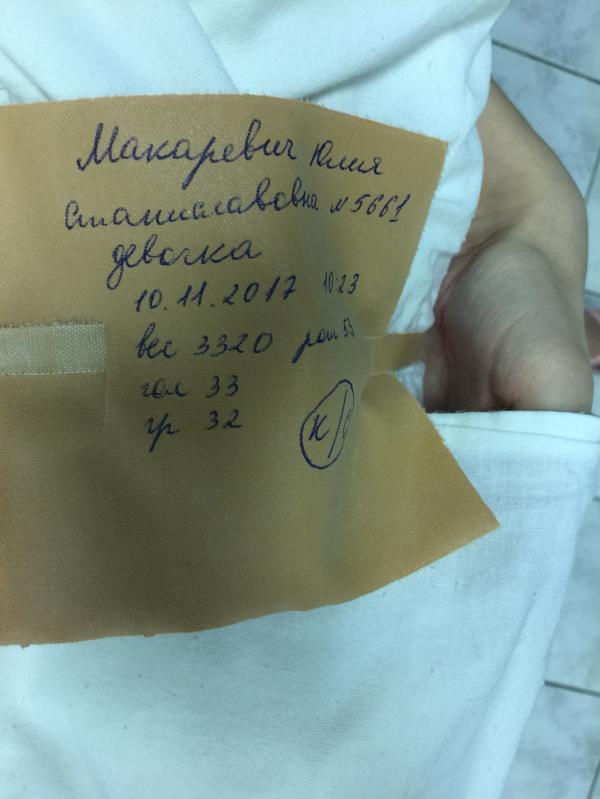 Макаревич Юлия
Станиславовна № 5661
девочка
10.11.2017 10:23
вес 3320 рост 53
гол 33
гр 32
к/